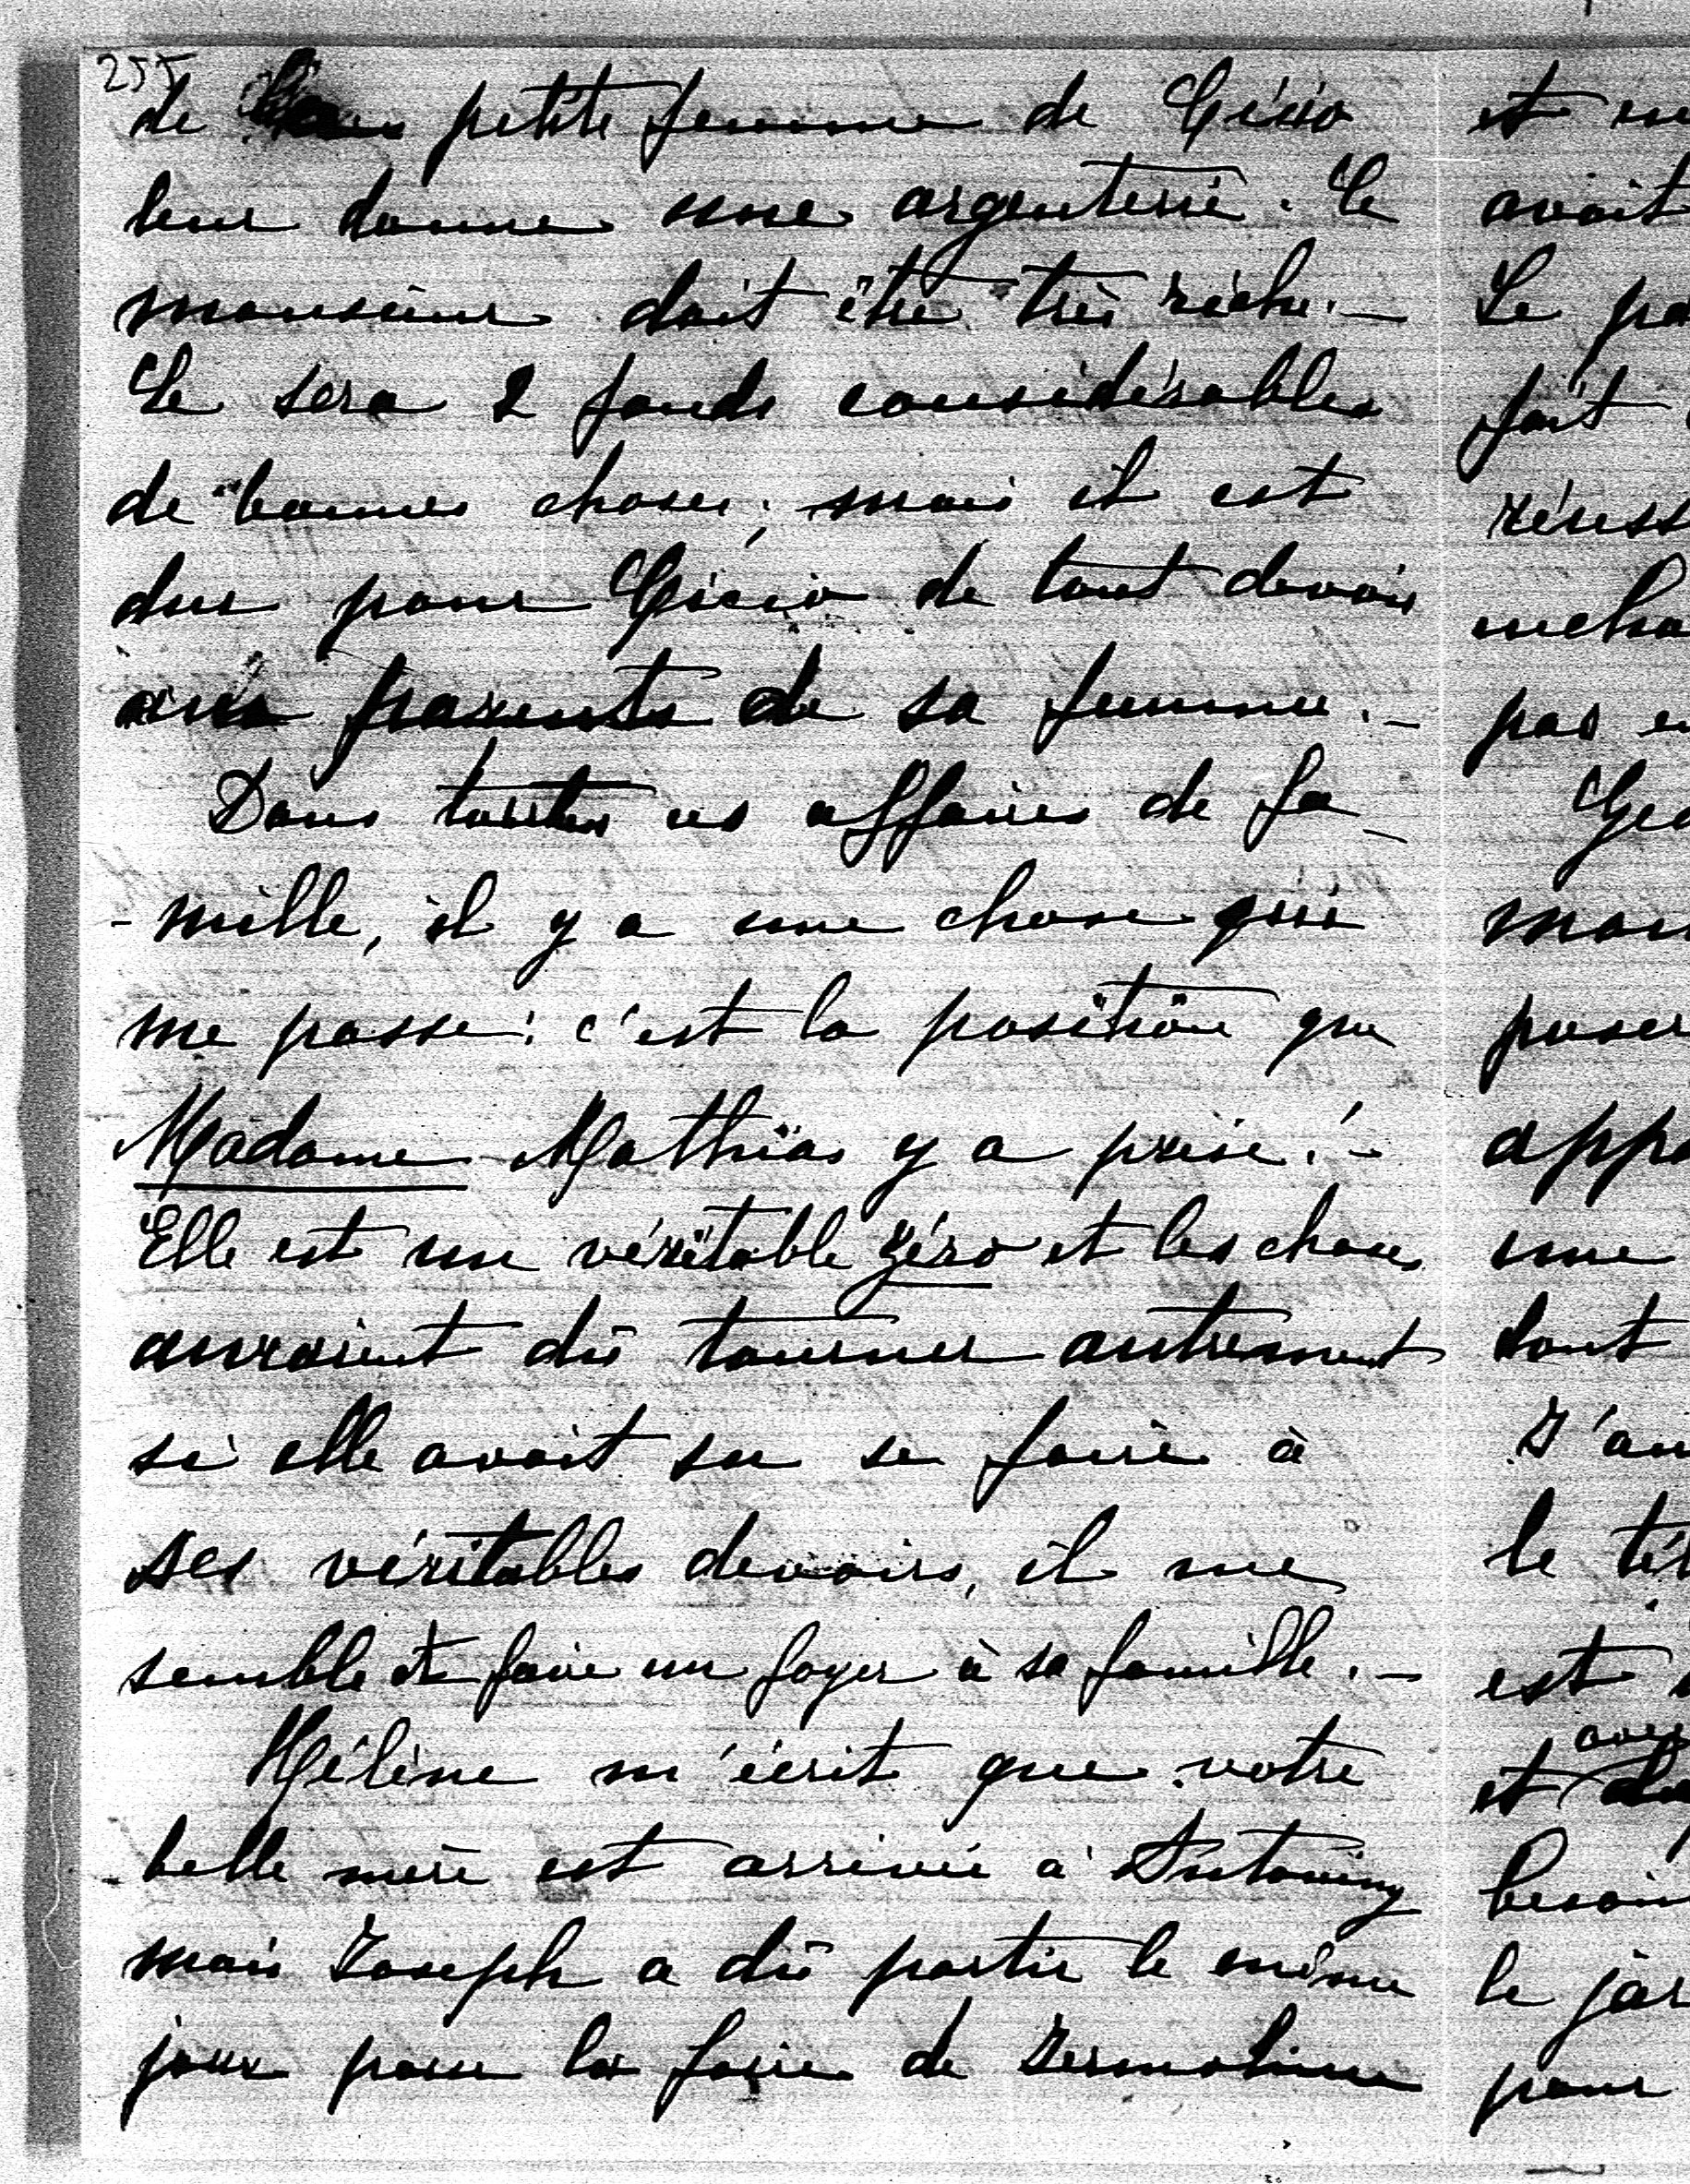 255
de petite femme de Gizio
leur donne une argenterie. Ce
monsieur doit être très riche. —
Ce sera 2 fonds considérables
de bonnes choses; mais il est
dur pour Gizio de tout devoir
aux parents de sa femme. —
Dans toutes ces affaires de fa-
-mille, il y a une chose qui
me passe: c'est la position que
Madame Mathias y a prise! —
Elle est un véritable zéro et les choses
auraient dû tourner autrement
si elle avait su se faire à
ses véritables devoirs, il me
semble et faire un foyer à sa famille. —
Hélène m'écrit que votre
belle mère est arrivée à Antoniny
mais Joseph a dû partir le même
jour pour la foire de
et
avait
Le
fait
pas
une
dont
le
est
et
le
pour